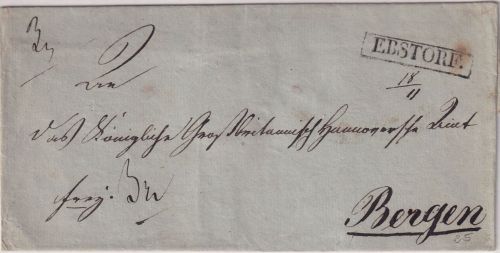 EBSTORF.
18/11
An
das Königliche Großbritannisch Hannoversche Amt
frey.
Bergen
25